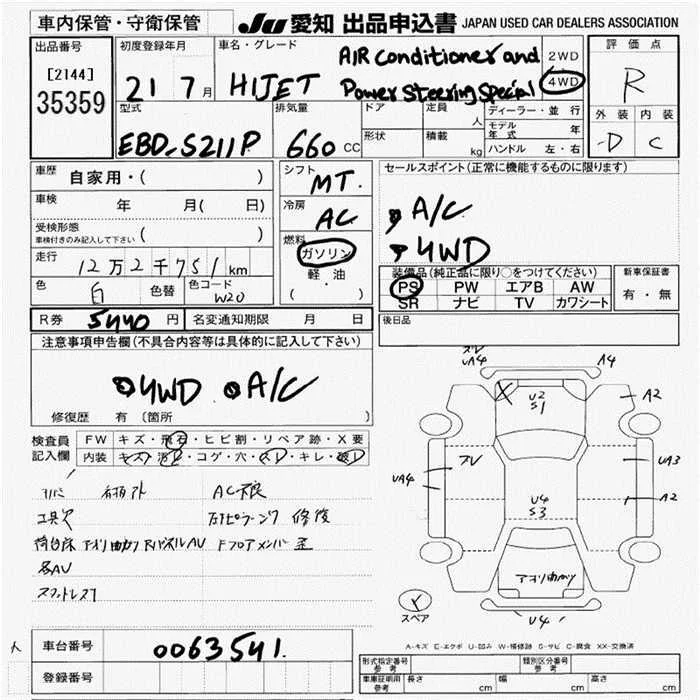 車内保管・守衛保管 JU 愛知 出品申込書 JAPAN USED CAR DEALERS ASSOCIATION
出品番号 初度登録年月 車名・グレード AIR conditioner and 2WD 評価点
[2144] 21 7月 HIJET Power Steering Special 4WD R
35359 型式 排気量 ドア 定員 人 ディーラー・並行 外装 内装
EBD-S211P 660 CC 形状 積載 kg モデル年式 年 -D C
ハンドル 左・右
車歴 自家用・( ) シフト MT. セールスポイント(正常に機能するものに限ります)
車検 年 月( 日) 冷房 AC A/C
受検形態 ( ) 燃料 4WD
車検付きのみ記入して下さい ガソリン
走行 12万2千751km 軽油 装備品(純正品に限り○をつけてください) 新車保証書
色 白 色替 色コード W20 ( ・ ) PS PW エアB AW 有・無
SR ナビ TV カワシート
R券 5440円 名変通知期限 月 日 後日品
注意事項申告欄(不具合内容等は具体的に記入して下さい)
4WD A/C
修復歴 有 (箇所 )
検査員 FW キズ・飛石・ヒビ割・リペア跡・X要
記入欄 内装 キズ・汚レ・コゲ・穴・スレ・キレ・破レ
AC不良
工具欠 修復
荷台床 アオリ曲ガリ
各AV
UA4 A4
U2
S1
A2
UA3
UA4
U4
S3
A2
アオリ曲ガリ
スペア U4
A-キズ E-エクボ U-凹み W-補修跡 S-サビ C-腐食 XX-交換済
車台番号 0063541.
登録番号
型式指定番号 参考 類別区分番号 参考
車庫証明用 参考 長さ cm 幅 cm 高さ cm